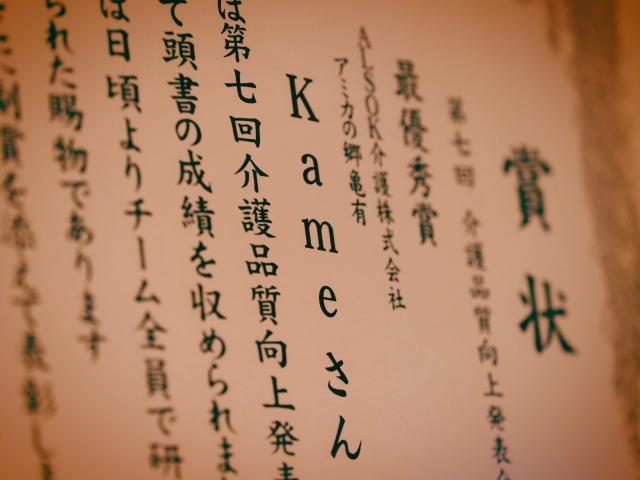 賞状
第七回 介護品質向上発表会
最優秀賞
ALSOK介護株式会社
アミカの郷亀有
Kameさん
は第七回介護品質向上発表
て頭書の成績を収められま
は日頃よりチーム全員で研
られた賜物であります
に副賞を添えて表彰しま